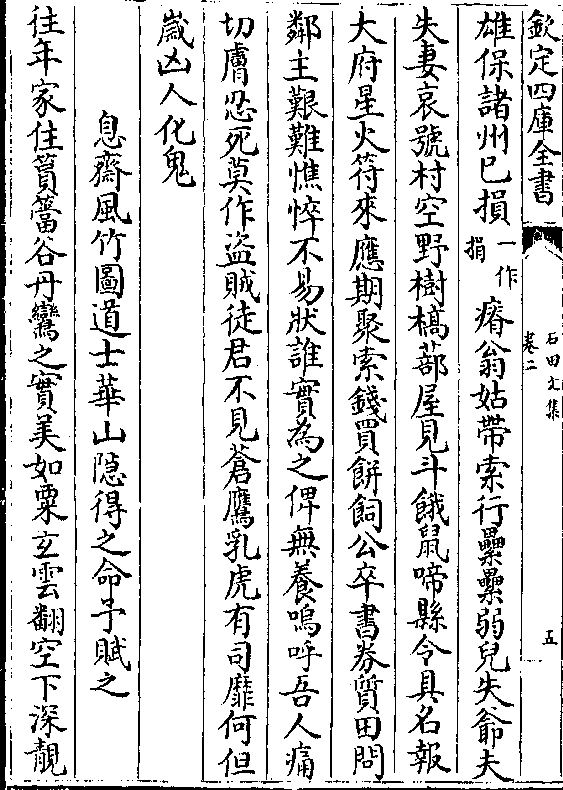 欽定四庫全書
石田文集
卷二
五
雄保諸州已損一作捐瘠翁姑帶索行纍纍弱兒失爺夫
失妻哀號村空野樹槁蔀屋見斗餓鼠啼縣令具名報
大府星火符來應期聚索錢買餅飼公卒書券質田問
鄰主艱難憔悴不易狀誰實為之俾無養嗚呼吾人痛
切膚忍死莫作盜賊徒君不見蒼鷹乳虎有司靡何但
嵗凶人化鬼
息齋風竹圖道士華山隱得之命予賦之
往年家住篔簹谷丹鸞之實美如粟玄雲翻空下深靚